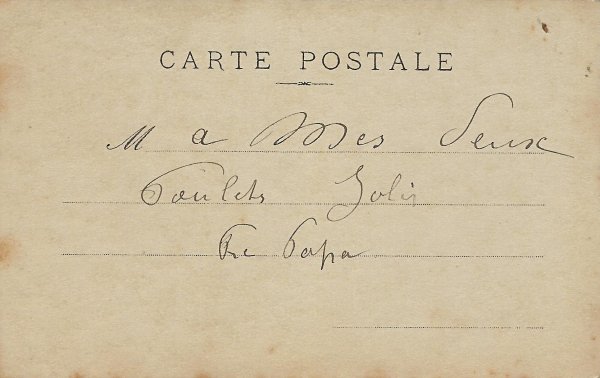 CARTE POSTALE
M a Mes Deux
Poulets Jolis
Papa